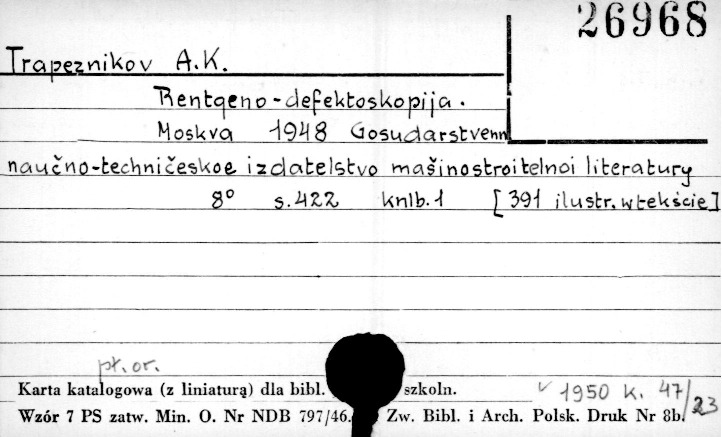 26968
Trapeznikov A.K.
Rentgeno-defektoskopija.
Moskva 1948 Gosudarstvenn
naučno-techničeskoe izdatelstvo mašinostroitelnoi literatury
8° s.422 knlb.1 [391 ilustr. w tekście]
pł. or.
Karta katalogowa (z liniaturą) dla bibl. szkoln.
1950 K. 47/23
Wzór 7 PS zatw. Min. O. Nr NDB 797/46. Zw. Bibl. i Arch. Polsk. Druk Nr 8b.